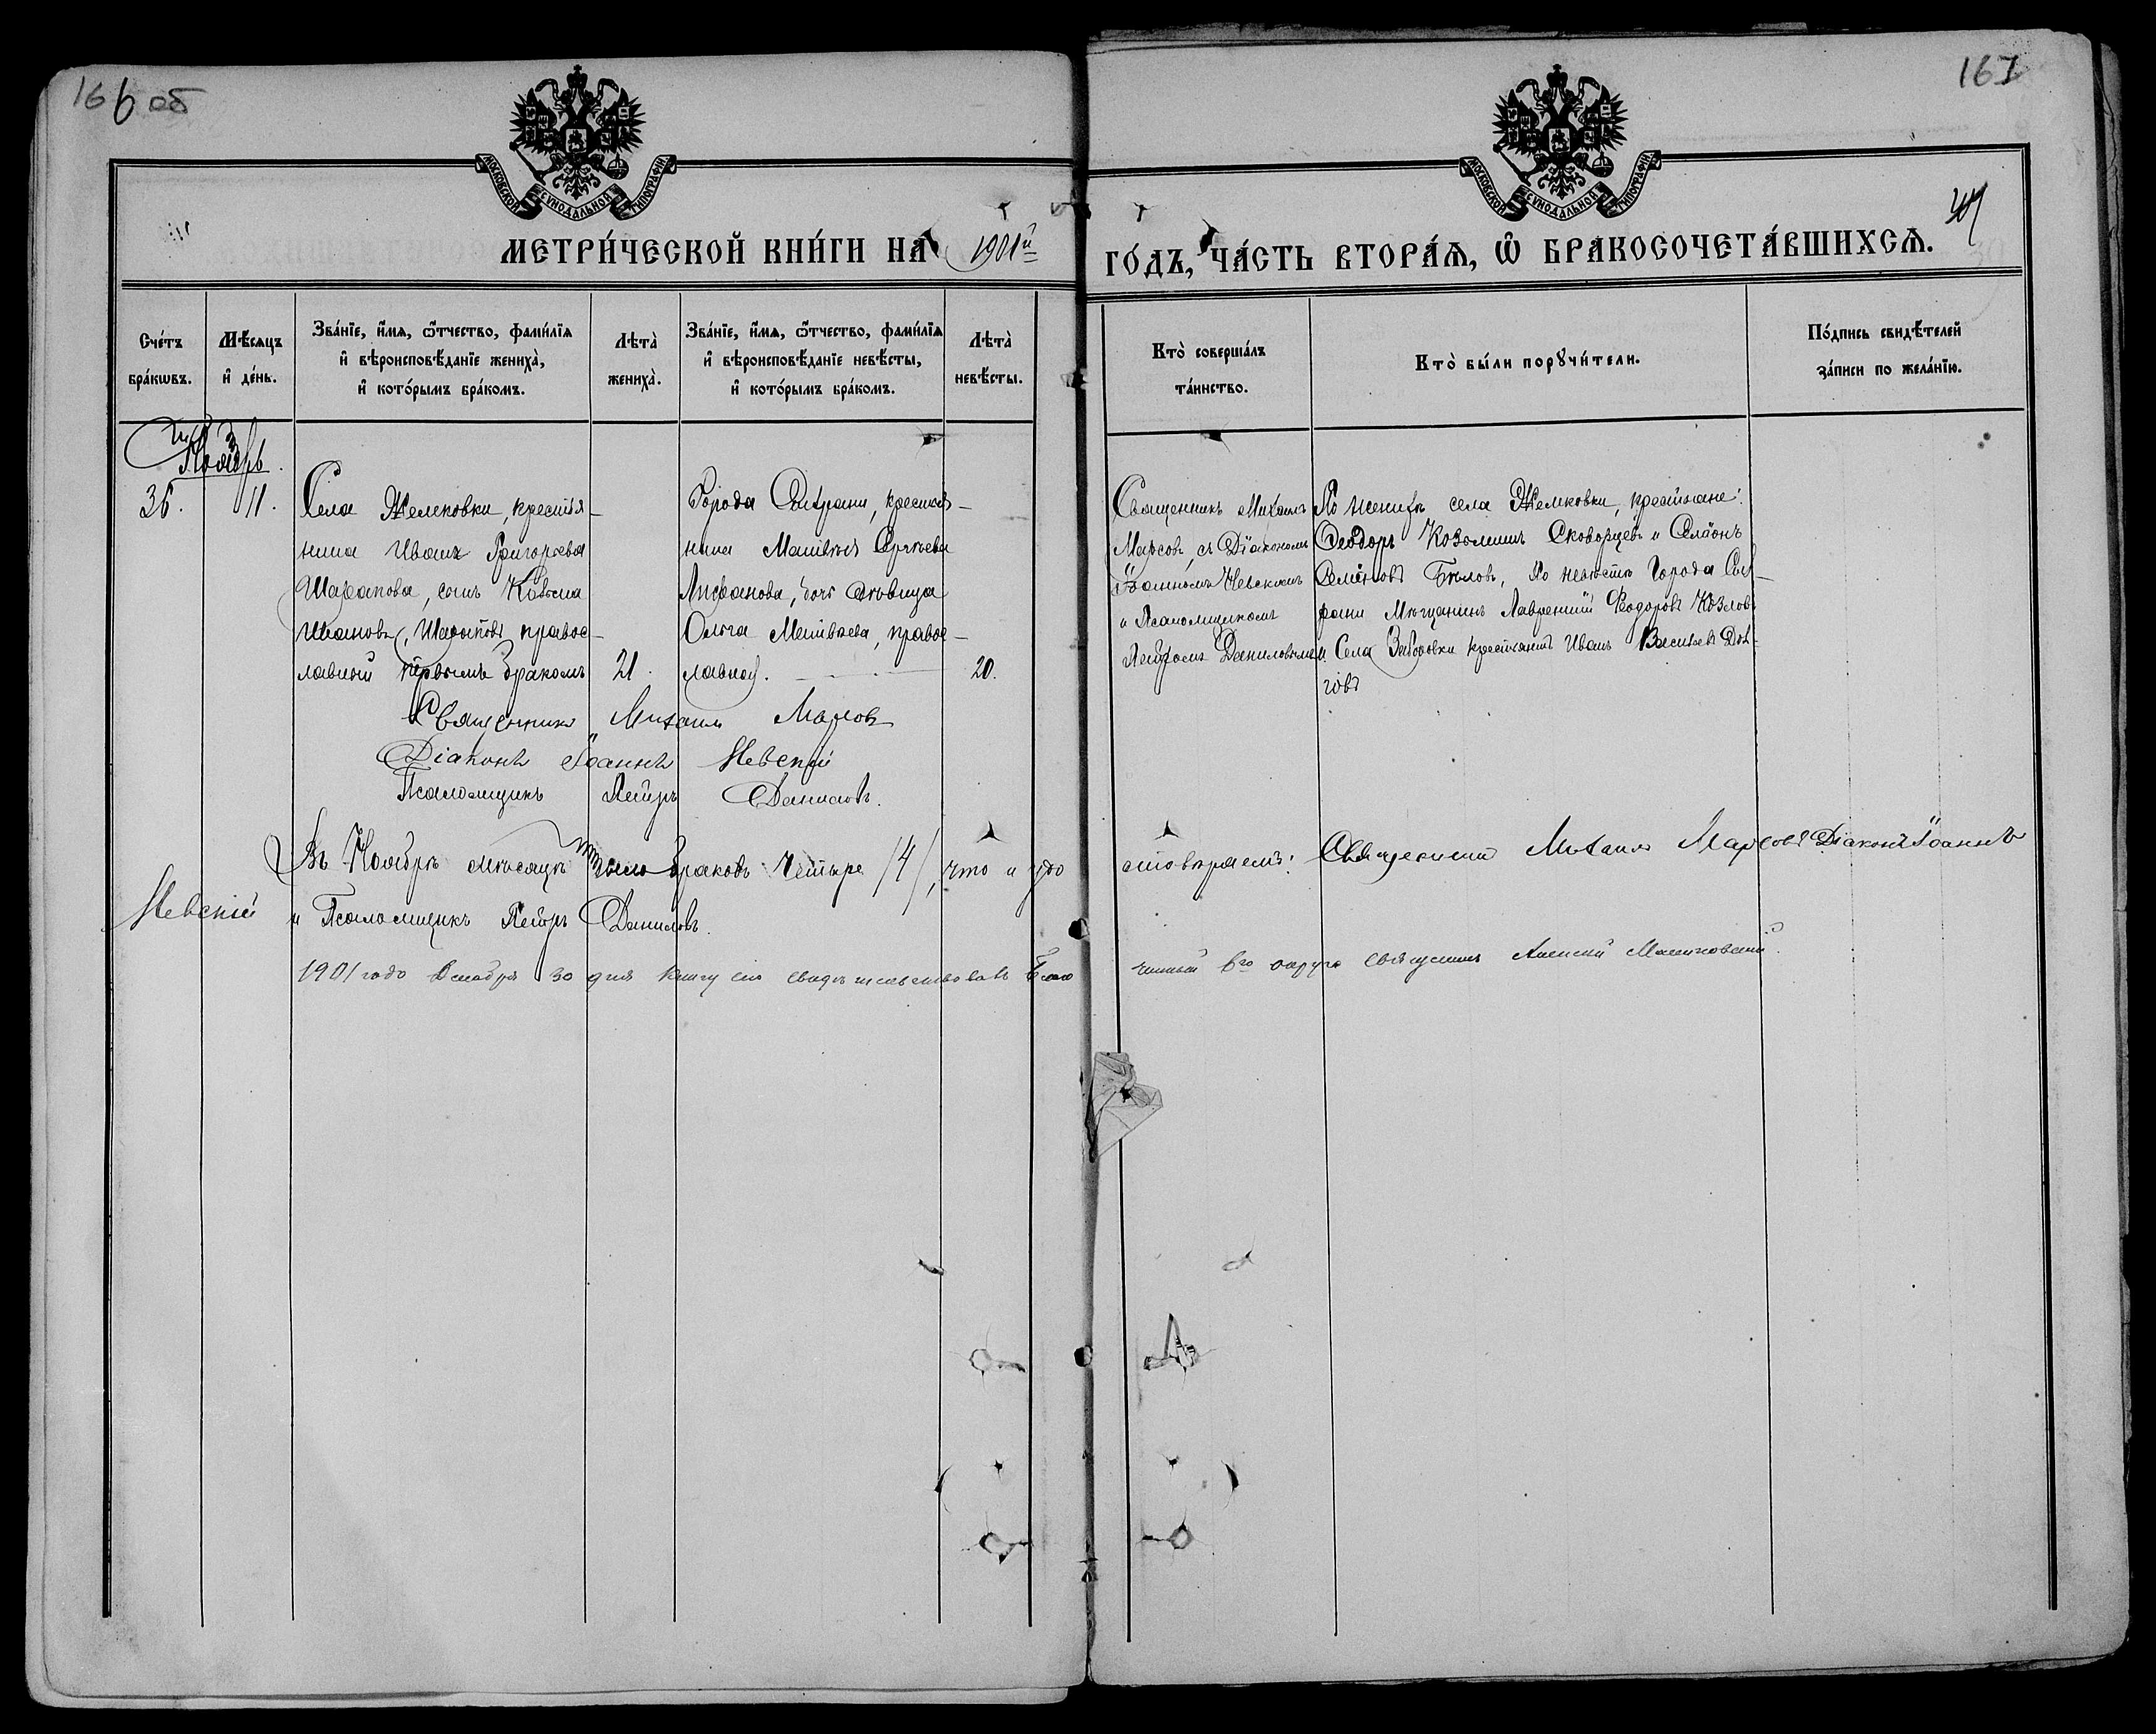 166 об
167
МОСКОВСКОЙ СѴНОДАЛЬНОЙ ТИПОГРАФІИ
МОСКОВСКОЙ СѴНОДАЛЬНОЙ ТИПОГРАФІИ
МЕТРИ́ЧЕСКОЙ КНИ́ГИ НА 1901й ГО́ДЪ, ЧА́СТЬ ВТОРА́Я, Ѡ҆ БРАКОСОЧЕТА́ВШИХСѦ.
Сче́тъ
бра́кѡвъ.
Мѣ́сѧцъ
и҆ де́нь.
Зва́нїе, и҆́мѧ, ѻ҆́тчество, фами́лїѧ
и҆ вѣроисповѣ́данїе жениха̀,
и҆ кото́рымъ бра́комъ.
Лѣта̀
жениха̀.
Зва́нїе, и҆́мѧ, ѻ҆́тчество, фами́лїѧ
и҆ вѣроисповѣ́данїе невѣ́сты,
и҆ кото́рымъ бра́комъ.
Лѣта̀
невѣ́сты.
Кто̀ соверша́лъ
та́инство.
Кто̀ бы́ли порꙋчи́тели.
По́дпись свидѣ́телей
за́писи по жела́нїю.
Ноябрь
36.
11.
Села Жемковки, крестья-
нина Ивана Григорьева
Шарапова, сынъ Косьма
Ивановъ, Шараповъ, правос-
лавный первымъ бракомъ
21.
Города Сызрани, крестья-
нина Матвѣя Сергѣева
Лифанова, дочь дѣвица
Ольга Матвѣева, правос-
лавной.
20.
Священникъ Михаилъ
Марсовъ, съ Діакономъ
Іоанномъ Невскимъ
и Псаломщикомъ
Петромъ Даниловымъ
По женихѣ села Жемковки, крестьяне:
Ѳеодоръ Козьминъ Скворцевъ и Симеонъ
Семёновъ Бѣловъ, По невѣстѣ Города Сыз-
рани Мѣщанинъ Лаврентій Ѳеодоровъ Козловъ
и Села Заборовки крестьянинъ Иванъ Васильевъ Дол-
говъ
Священникъ Михаилъ Марсовъ
Діаконъ Іоаннъ Невскій
Псаломщикъ Петръ Даниловъ.
Въ Ноябрѣ мѣсяцѣ было браковъ четыре /4/, что и удо
стовѣряемъ: Священникъ Михаилъ Марсовъ Діаконъ Іоаннъ
Невскій и Псаломщикъ Петръ Даниловъ.
1901 года Декабря 30 дня книгу сію свидѣтельствовалъ Благо
чинный 6го округа священникъ Алексій